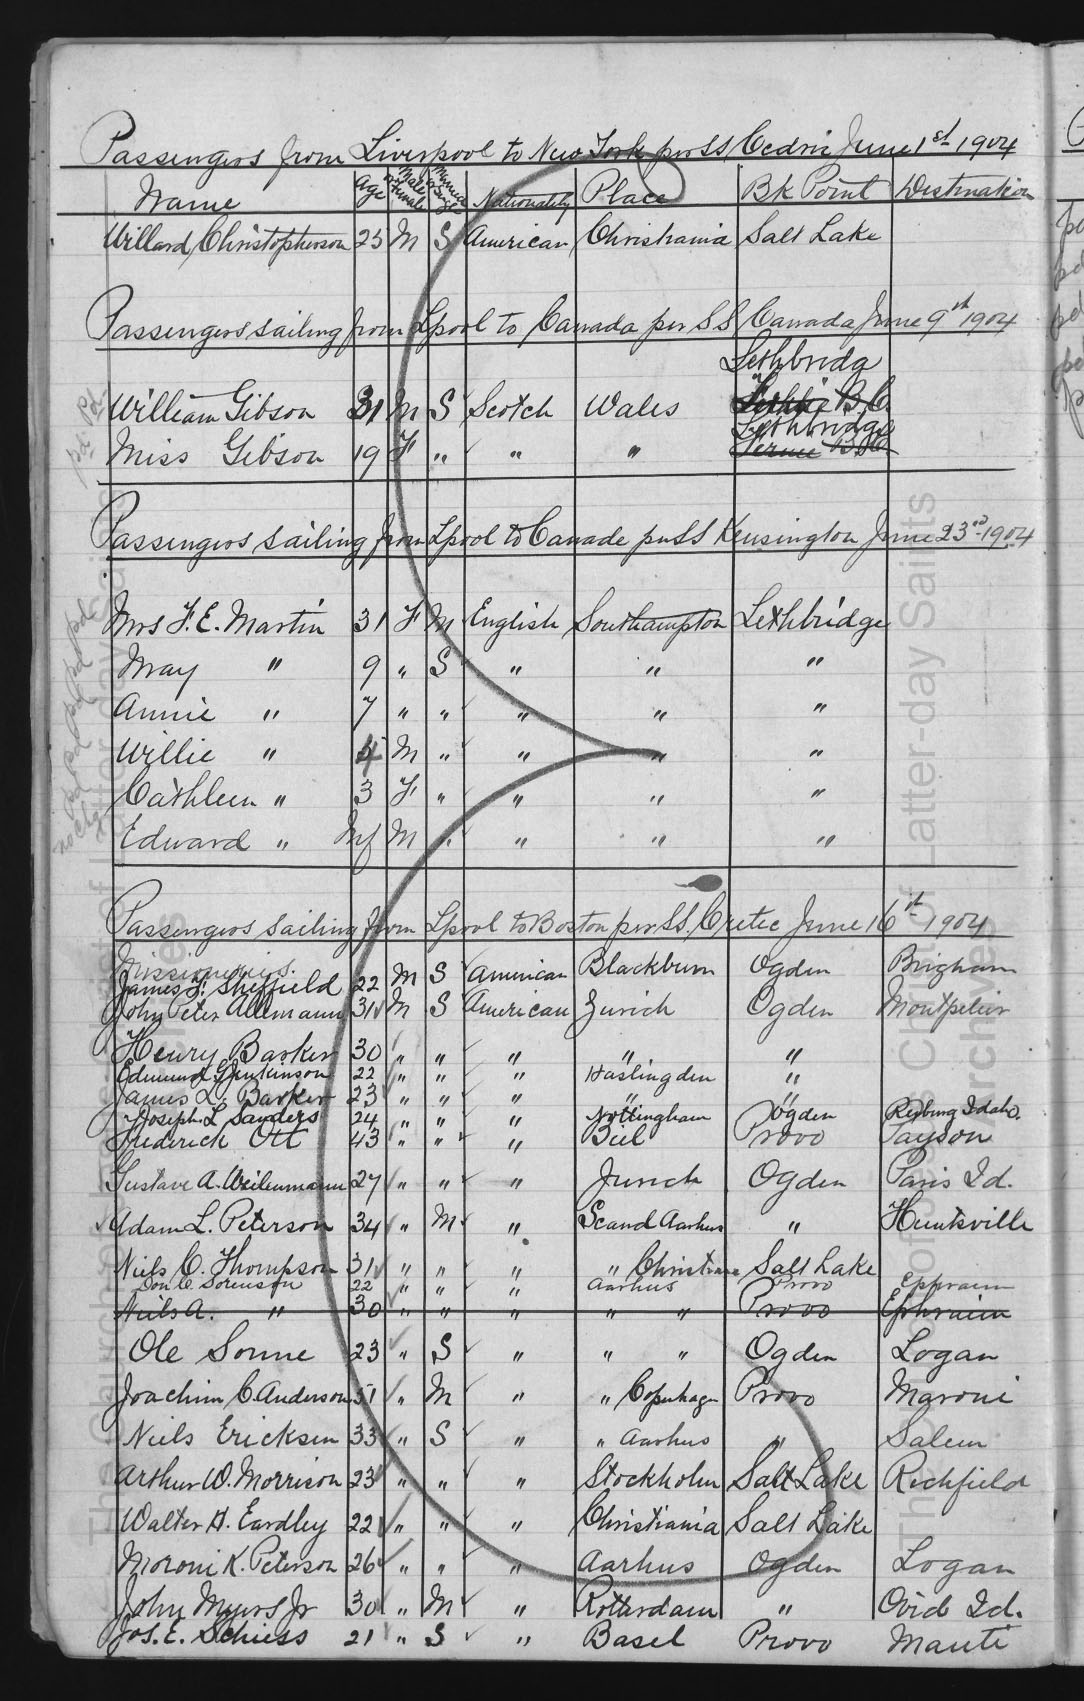 Passengers from Liverpool to New York per SS Cedric June 1st 1904
Name Age Male or Female Married or Single Nationality Place Bk Point Destination
Willard Christopherson 23 M S American Christiania Salt Lake
Passengers sailing from Lpool to Canada per SS Canada June 9th 1904
Lethbridg
William Gibson 31 M S Scotch Wales B.C.
Lethbridge
Miss Gibson 19 F " " " Fernie B.C.
Passengers sailing from Lpool to Canada per SS Kensington June 23rd 1904
Mrs F. E. Martin 31 F M English Southampton Lethbridge
May " 9 " S " " "
Annie " 7 " " " " "
Willie " 4 M " " " "
Cathleen " 3 F " " " "
Edward " Inf M " " " "
Passengers sailing from Lpool to Boston per SS. Cretic June 16th 1904
Missionaries.
James F. Sheffield 22 M S American Blackburn Ogden Brigham
John Peter Allemann 31 M S American Zurich Ogden Montpelier
Henry Barker 30 " " " " "
Edmund G. Jenkinson 22 " " " Haslingden "
James L. Barker 23 " " " " "
Joseph L Sanders 24 " " " Nottingham Ogden Rexburg Idaho.
Frederick Ott 43 " " " Biel Provo Payson
Gustave A. Weilenmann 27 " " " Zurich Ogden Paris Id.
Adam L. Peterson 34 " M " Scand Aarhus " Huntsville
Niels C. Thompson 31 " " " " Christiana Salt Lake
Don C. Sorenson 22 " " " Aarhus Provo Ephraim
Niels A. " 30 " " " " " Provo Ephraim
Ole Sonne 23 " S " " " Ogden Logan
Joachim C. Anderson 51 " M " " Copenhagen Provo Maroni
Niels Ericksen 33 " S " " Aarhus " Salem
Arthur W. Morrison 23 " " " Stockholm Salt Lake Richfield
Walter A. Eardley 22 " " " Christiania Salt Lake
Moroni K. Peterson 26 " " " Aarhus Ogden Logan
John Myers Jr 30 " M " Rotterdam " Ovid Id.
Jos. E. Schiess 21 " S " Basel Provo Manti